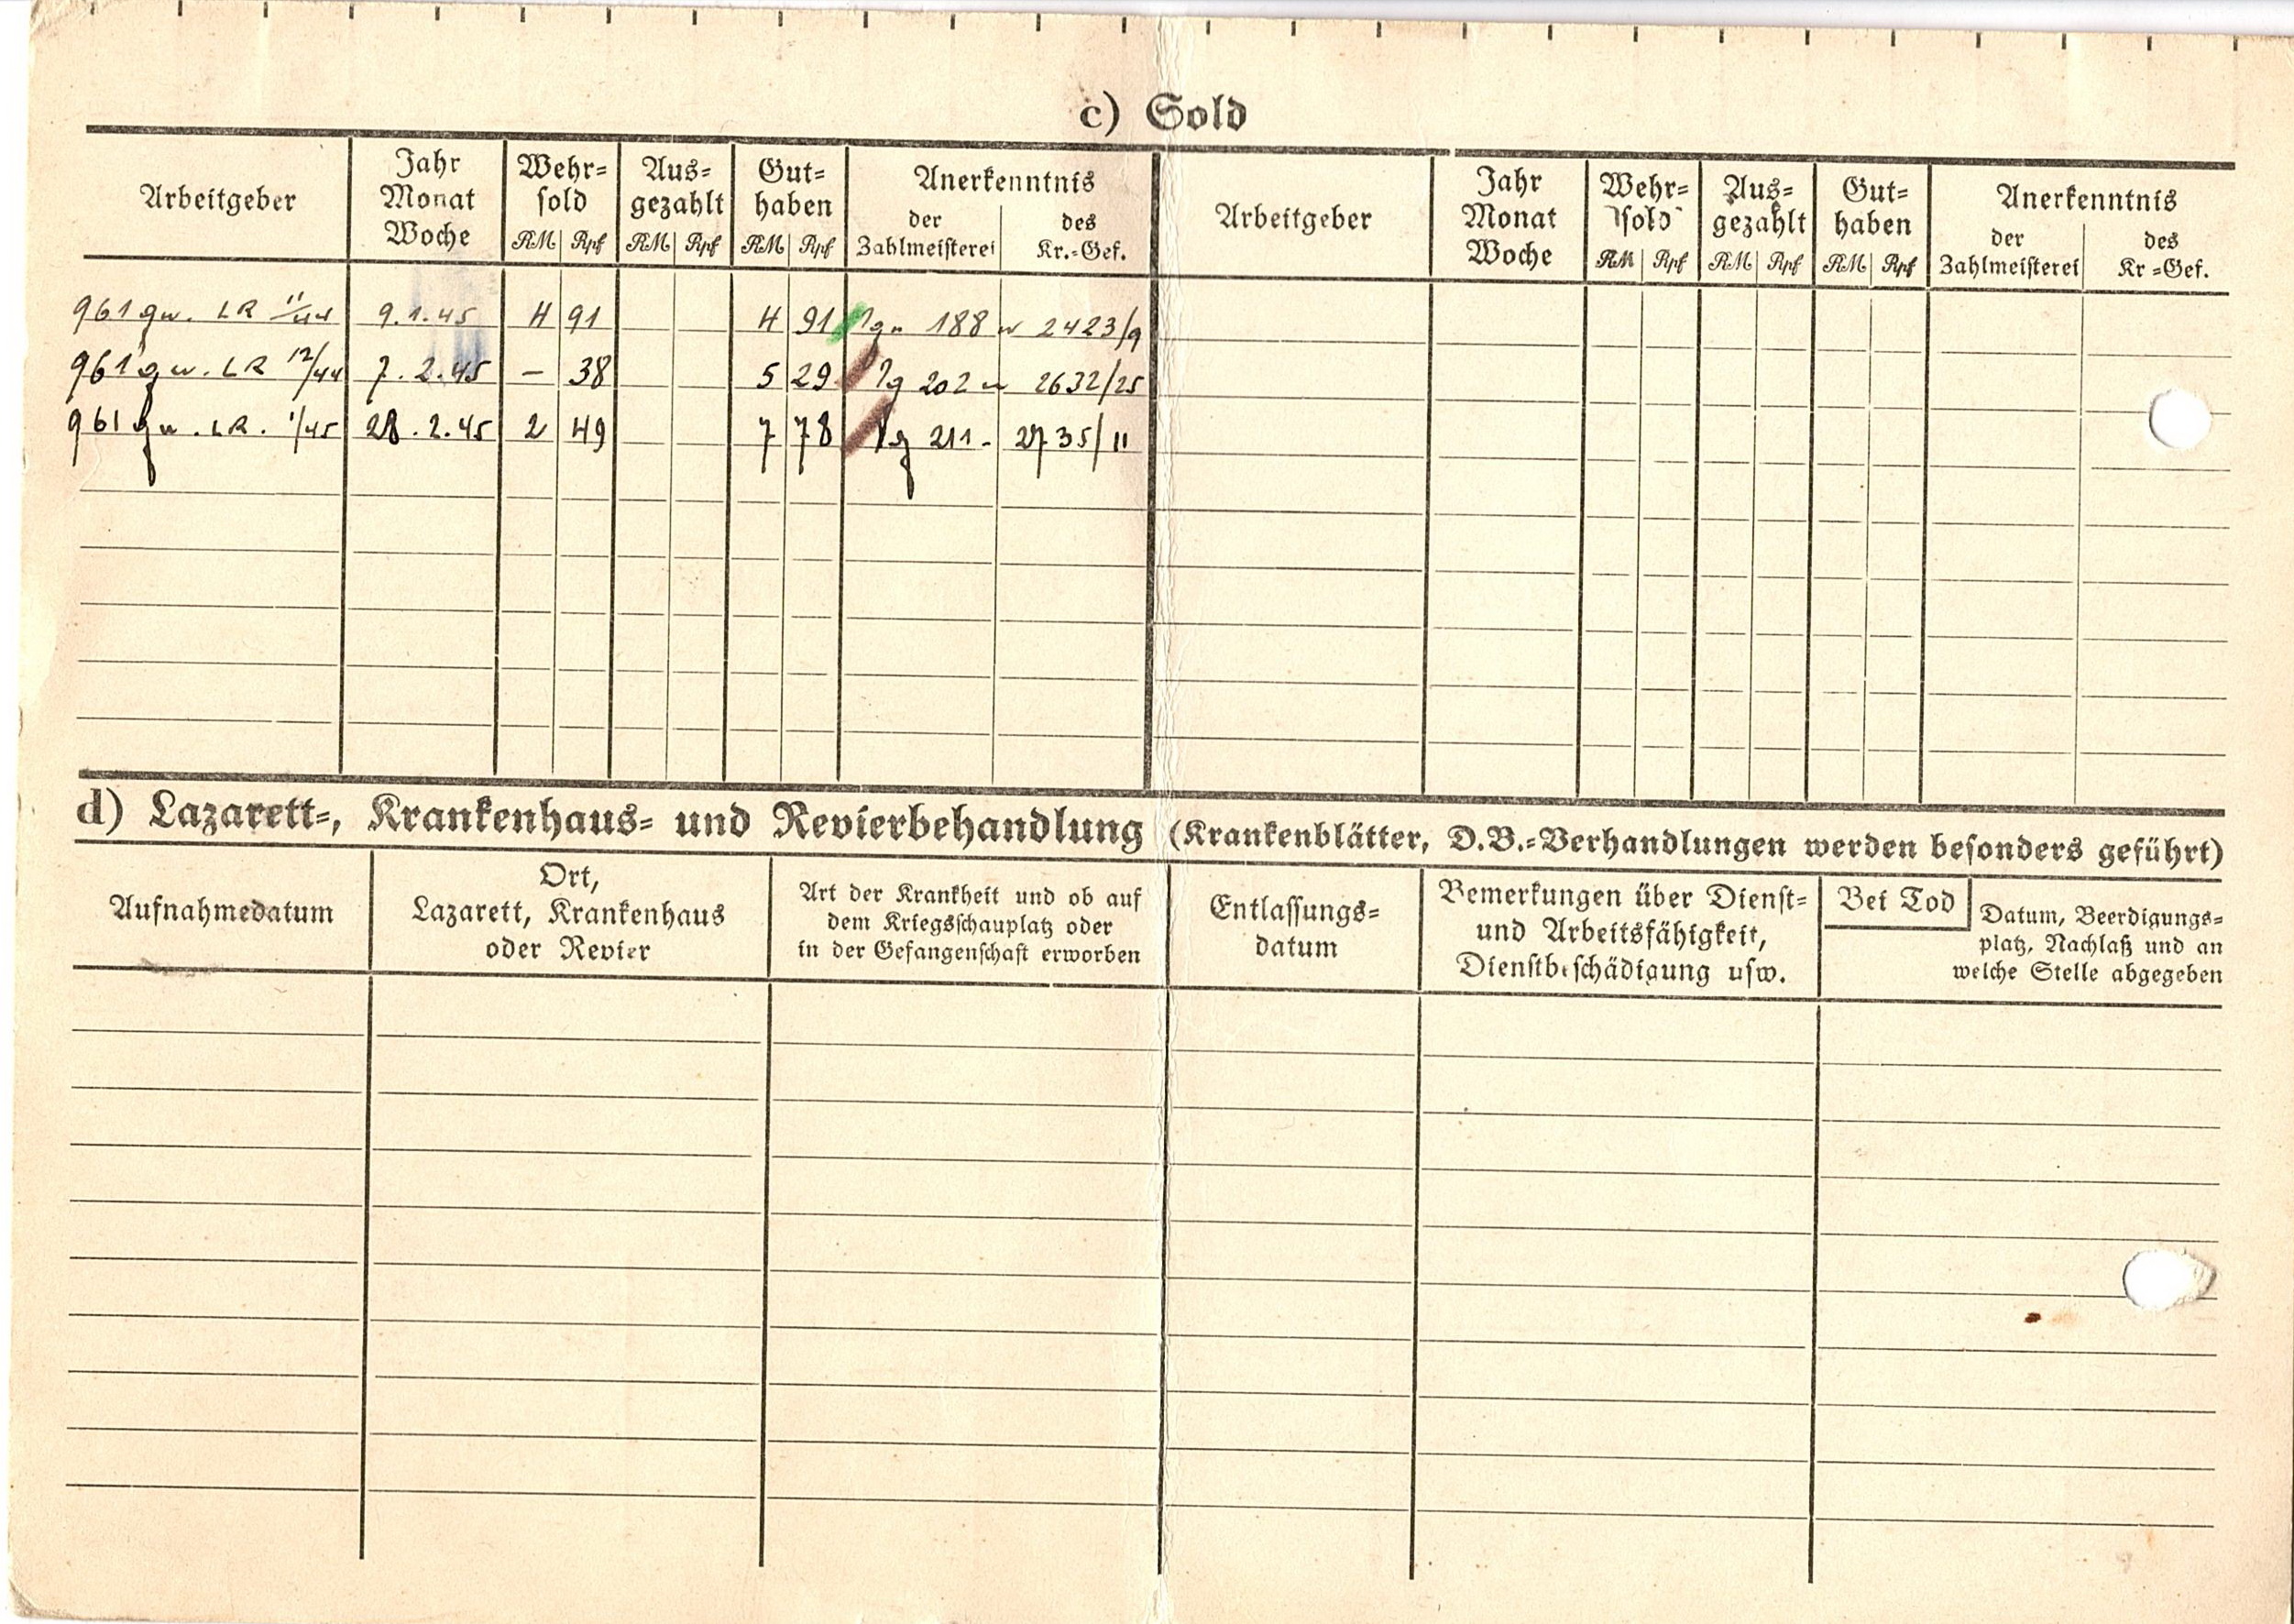 c) Sold
Arbeitgeber
Jahr
Monat
Woche
Wehr=
sold
RM Rpf
Aus=
gezahlt
RM Rpf
Gut=
haben
RM Rpf
Anerkenntnis
der
Zahlmeisterei
des
Kr.=Gef.
Arbeitgeber
Jahr
Monat
Woche
Wehr=
sold
RM Rpf
Aus=
gezahlt
RM Rpf
Gut=
haben
RM Rpf
Anerkenntnis
der
Zahlmeisterei
des
Kr=Gef.
961 gw. LR 11/44 9.1.45 4 91 4 91 188 2423/9
961 gw. LR 12/44 7.2.45 – 38 5 29 202 2632/25
961 gw. LR. 1/45 28.2.45 2 49 7 78 211 2735/11
d) Lazarett=, Krankenhaus= und Revierbehandlung (Krankenblätter, D.B.=Verhandlungen werden besonders geführt)
Aufnahmedatum
Ort,
Lazarett, Krankenhaus
oder Revier
Art der Krankheit und ob auf
dem Kriegsschauplatz oder
in der Gefangenschaft erworben
Entlassungs=
datum
Bemerkungen über Dienst=
und Arbeitsfähigkeit,
Dienstbeschädigung usw.
Bei Tod
Datum, Beerdigungs=
platz, Nachlaß und an
welche Stelle abgegeben